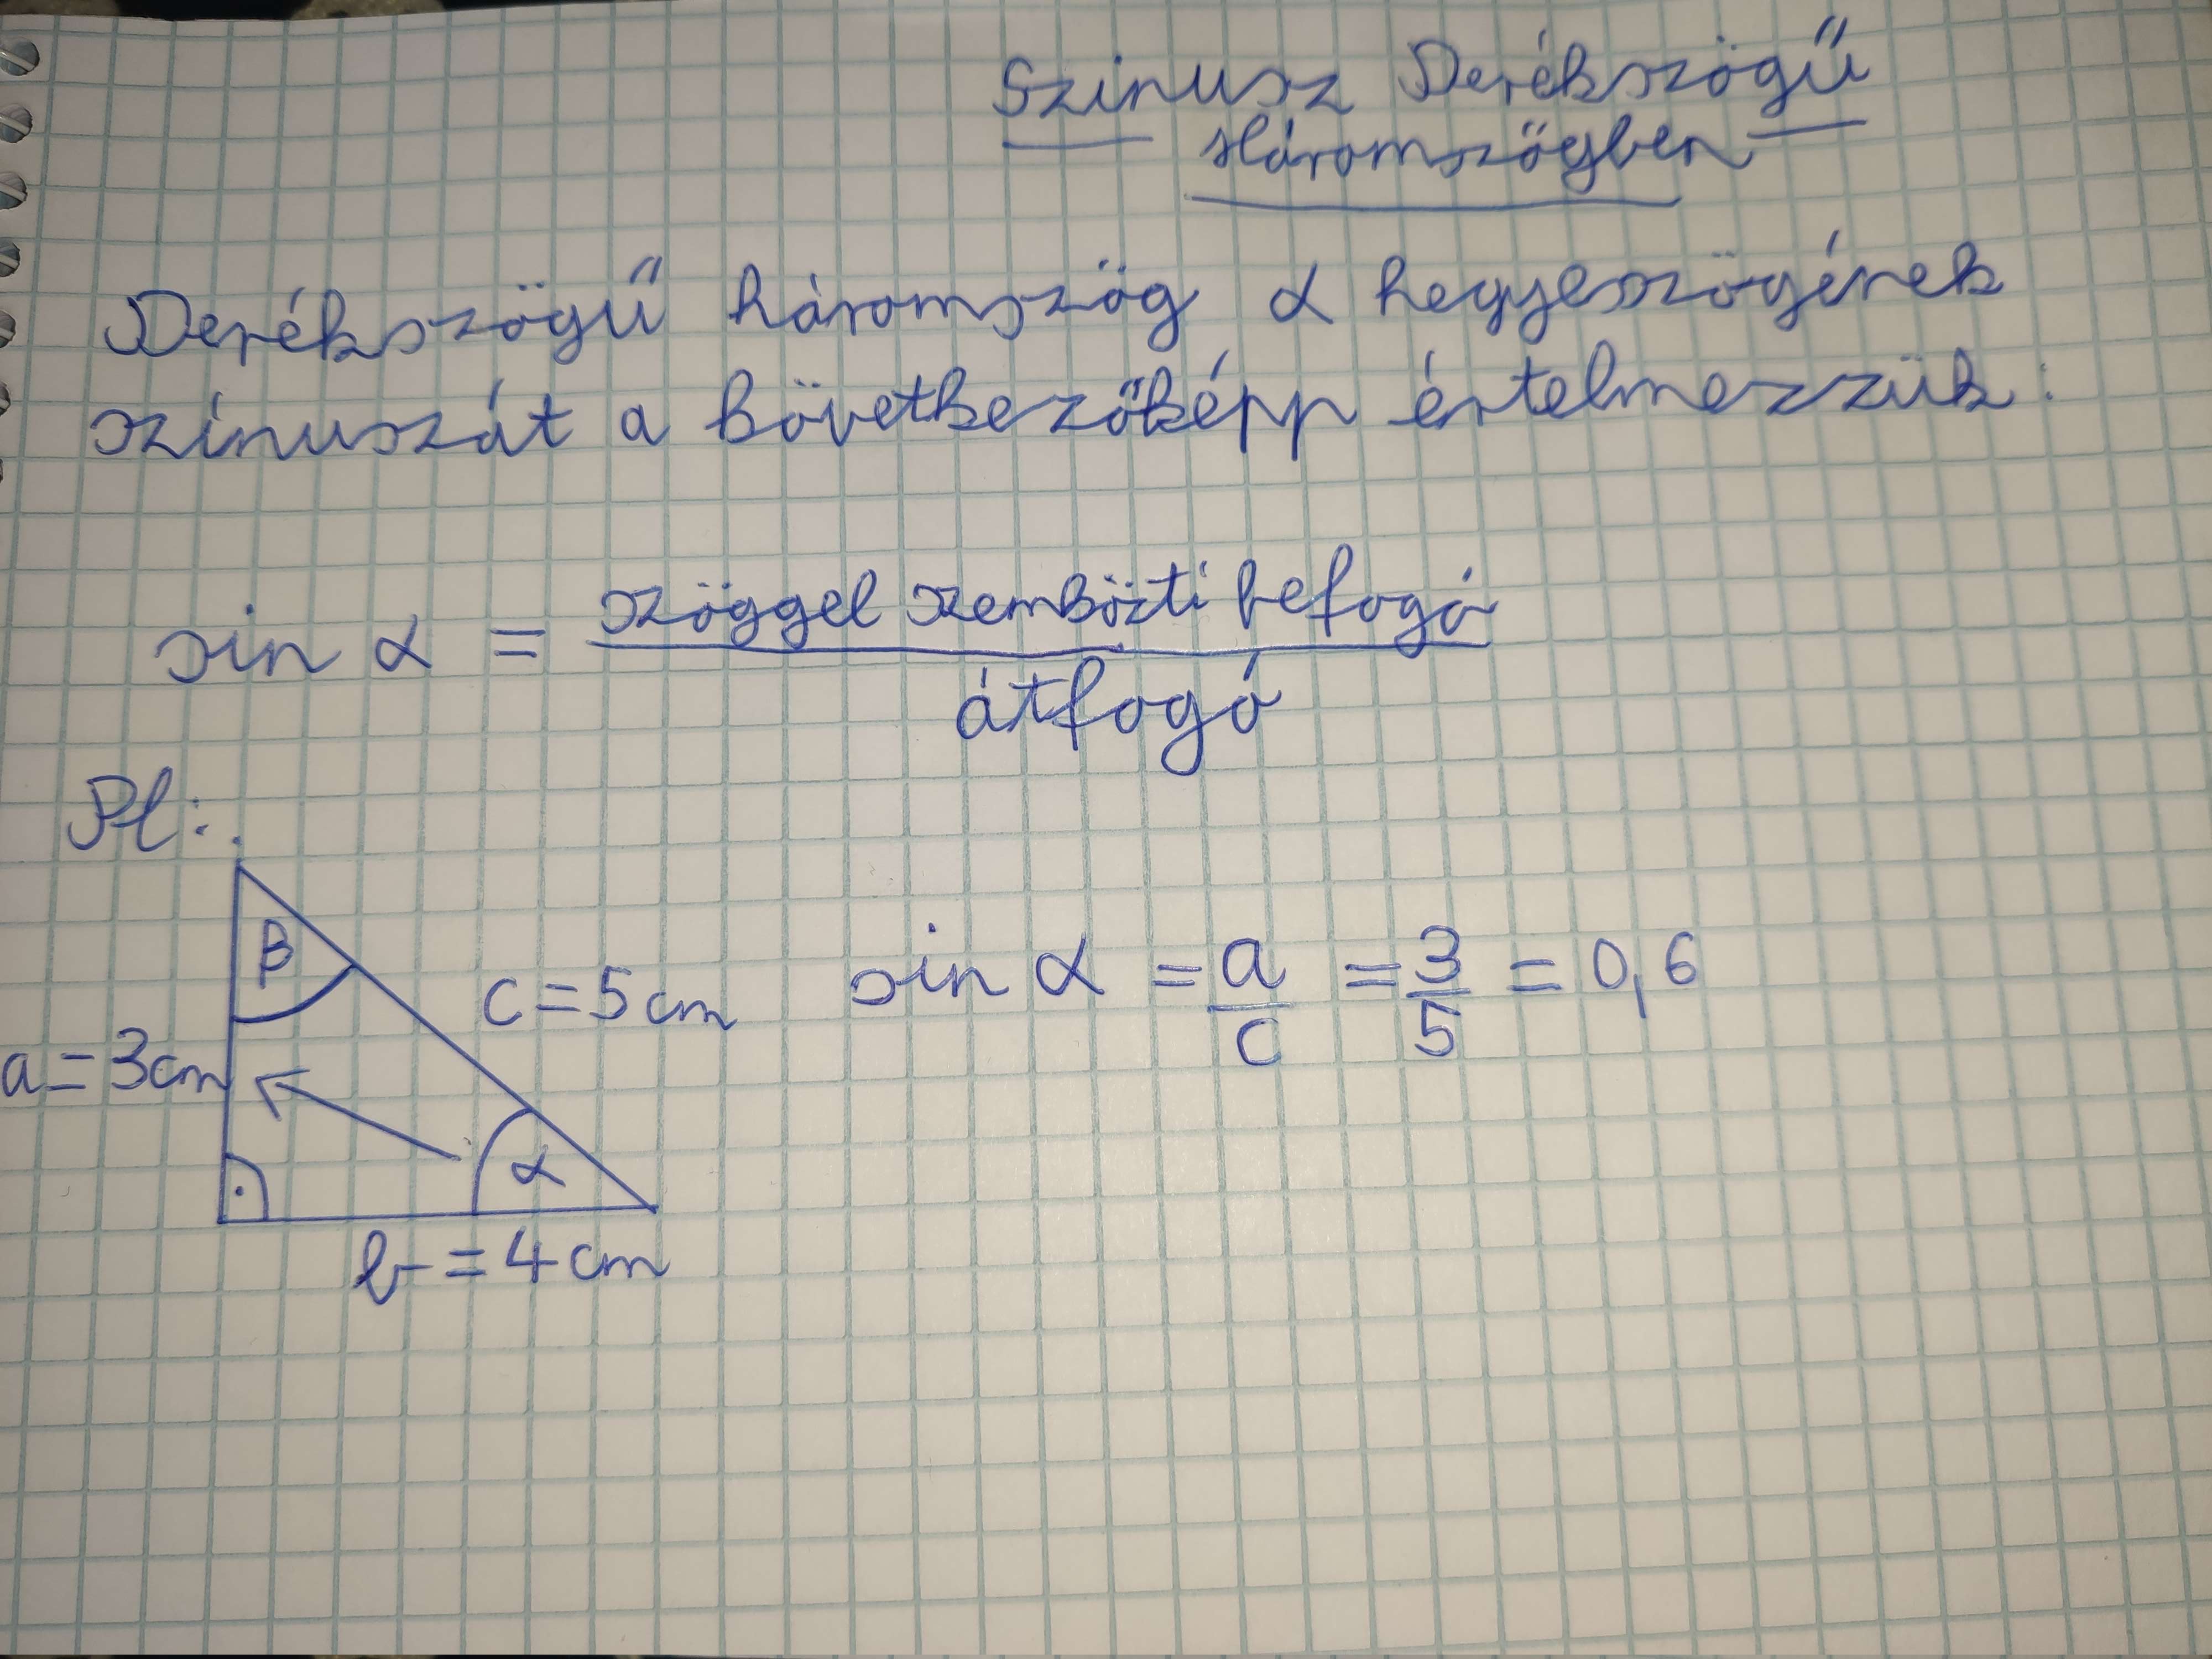 Szinusz Derékszögű
Háromszögben
Derékszögű háromszög α hegyesszögének
szinuszát a következőképp értelmezzük:
sin α = szöggel szembözti befogó / átfogó
Pl:
β
c = 5 cm
sin α = a/c = 3/5 = 0,6
a = 3cm
α
b = 4 cm